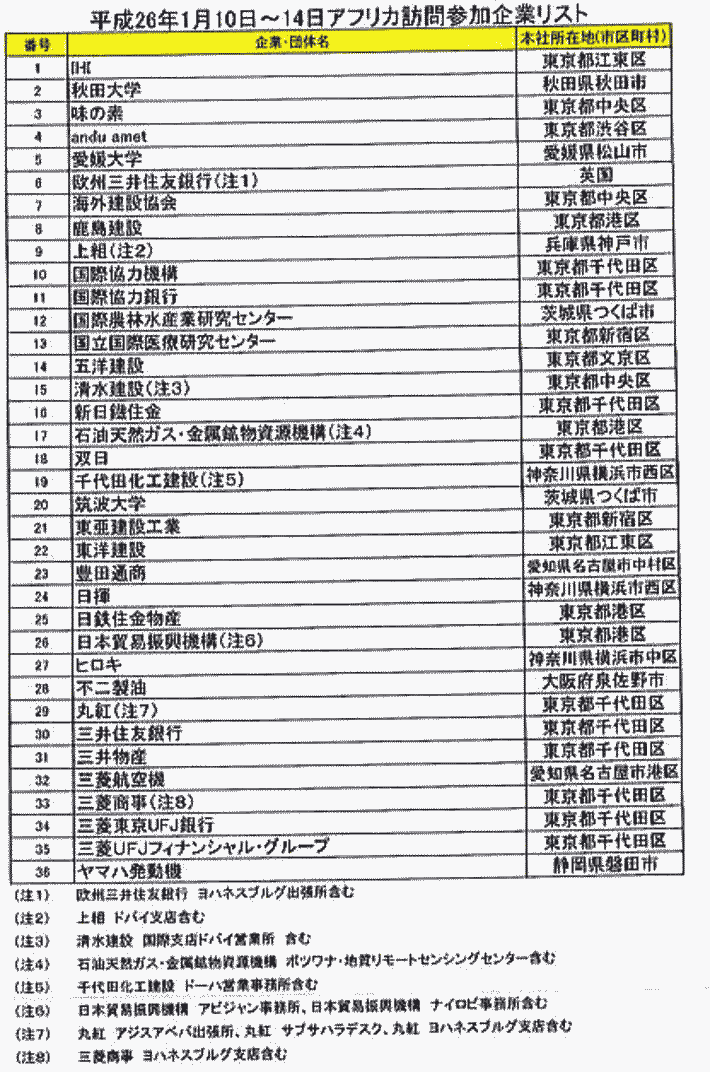 平成26年1月10日～14日アフリカ訪問参加企業リスト
番号 企業・団体名 本社所在地(市区町村)
1 IHI 東京都江東区
2 秋田大学 秋田県秋田市
3 味の素 東京都中央区
4 andu amet 東京都渋谷区
5 愛媛大学 愛媛県松山市
6 欧州三井住友銀行(注1) 英国
7 海外建設協会 東京都中央区
8 鹿島建設 東京都港区
9 上組(注2) 兵庫県神戸市
10 国際協力機構 東京都千代田区
11 国際協力銀行 東京都千代田区
12 国際農林水産業研究センター 茨城県つくば市
13 国立国際医療研究センター 東京都新宿区
14 五洋建設 東京都文京区
15 清水建設(注3) 東京都中央区
16 新日鐵住金 東京都千代田区
17 石油天然ガス・金属鉱物資源機構(注4) 東京都港区
18 双日 東京都千代田区
19 千代田化工建設(注5) 神奈川県横浜市西区
20 筑波大学 茨城県つくば市
21 東亜建設工業 東京都新宿区
22 東洋建設 東京都江東区
23 豊田通商 愛知県名古屋市中村区
24 日揮 神奈川県横浜市西区
25 日鉄住金物産 東京都港区
26 日本貿易振興機構(注6) 東京都港区
27 ヒロキ 神奈川県横浜市中区
28 不二製油 大阪府泉佐野市
29 丸紅(注7) 東京都千代田区
30 三井住友銀行 東京都千代田区
31 三井物産 東京都千代田区
32 三菱航空機 愛知県名古屋市港区
33 三菱商事(注8) 東京都千代田区
34 三菱東京UFJ銀行 東京都千代田区
35 三菱UFJフィナンシャル・グループ 東京都千代田区
36 ヤマハ発動機 静岡県磐田市
(注1) 欧州三井住友銀行 ヨハネスブルグ出張所含む
(注2) 上組 ドバイ支店含む
(注3) 清水建設 国際支店ドバイ営業所 含む
(注4) 石油天然ガス・金属鉱物資源機構 ボツワナ・地質リモートセンシングセンター含む
(注5) 千代田化工建設 ドーハ営業事務所含む
(注6) 日本貿易振興機構 アビジャン事務所、日本貿易振興機構 ナイロビ事務所含む
(注7) 丸紅 アジスアベバ出張所、丸紅 サブサハラデスク、丸紅 ヨハネスブルグ支店含む
(注8) 三菱商事 ヨハネスブルグ支店含む